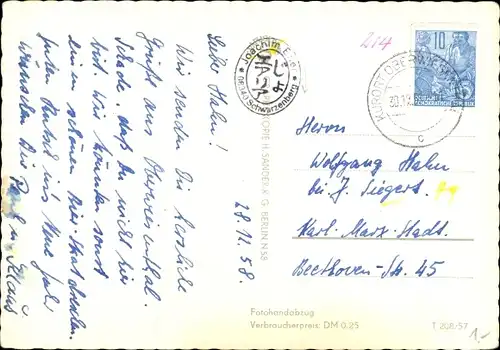 Lieber Hahn!
Wir senden Dir herzliche
Grüße aus Oberwiesenthal.
Schade daß Du nicht hier
bist wir könnten sonst
einen schönen Skat dreschen.
guten Rutsch ins Neue Jahr
wünschen Dir
Klaus
28.12.58.
214
Joachim E
Schwarzenberg
10
DEUTSCHE
DEMOKRATISCHE REPUBLIK
KURORT OBERWIESENTHAL
30.12
c
Herrn
Wolfgang Hahn
bei J. Siegert.
Karl-Marx-Stadt
Beethoven-Str. 45
H. SANDER K. G. BERLIN N 55
Fotohandabzug
Verbraucherpreis: DM 0.25
T 308/57
1.-